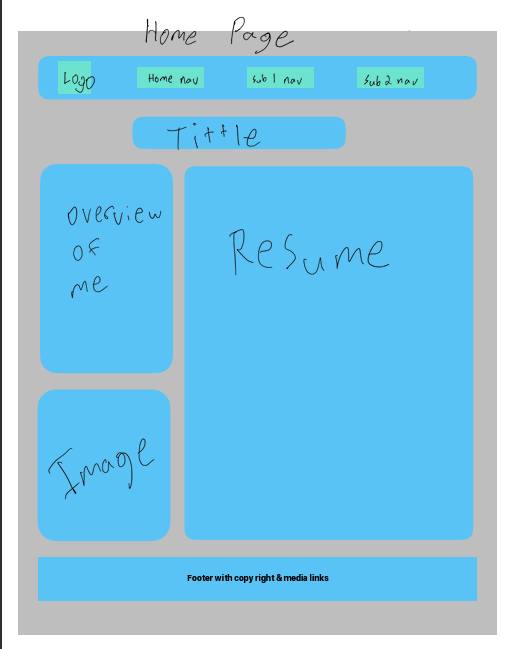 Home Page
Logo
Home nav
Sub 1 nav
Sub 2 nav
Tittle
overview
of
me
Resume
Image
Footer with copy right & media links